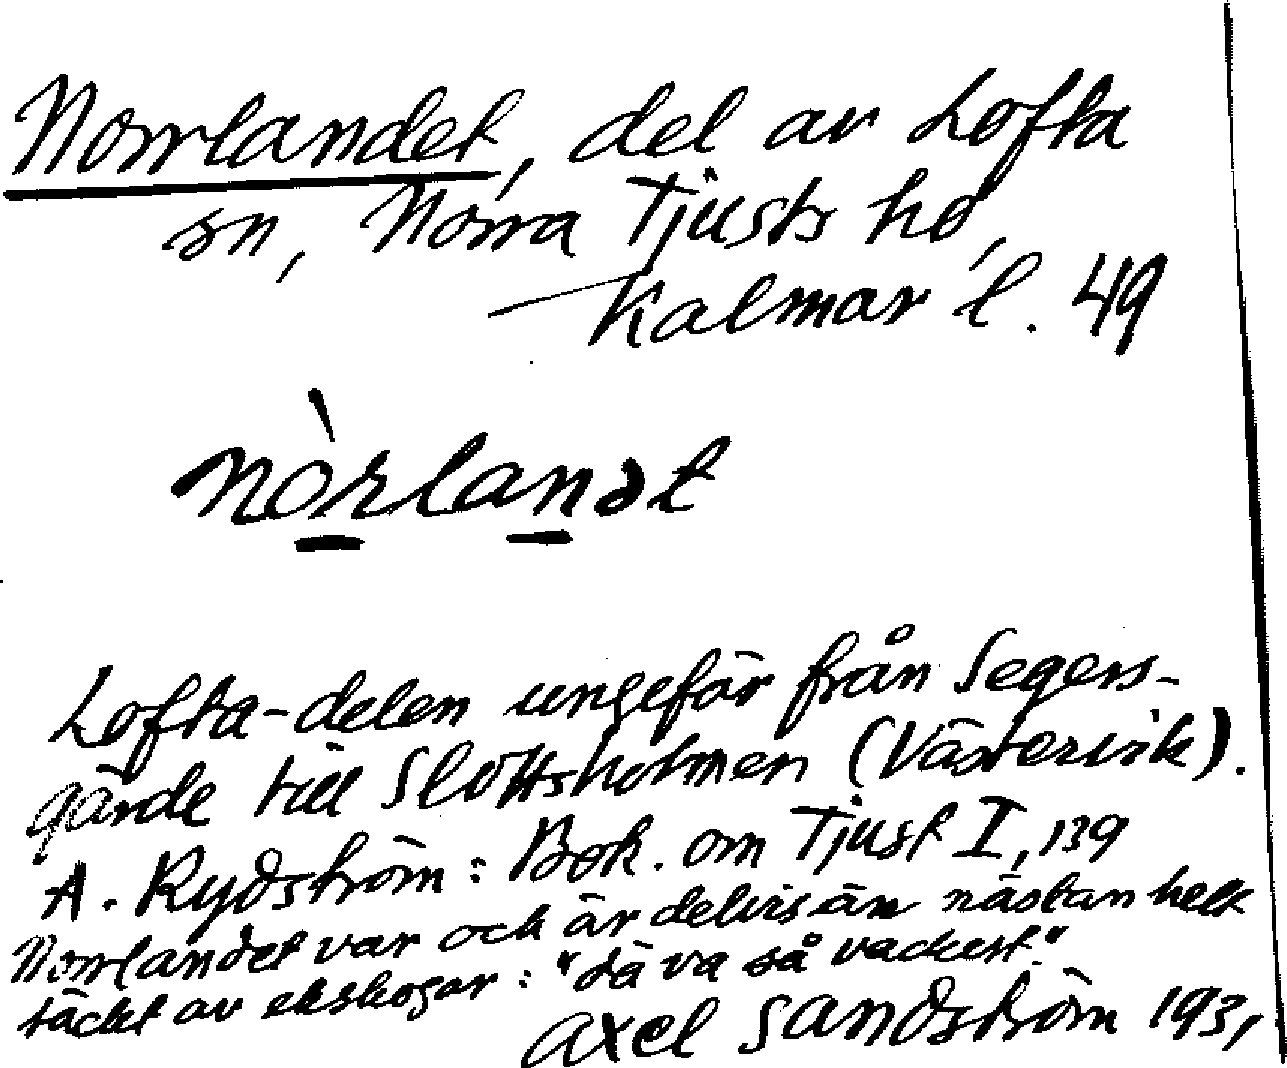 Norrlandet, del av Lofta
sn, Norra Tjusts hd,
Kalmar l. 49
nòrlanət
Lofta-delen ungefär från Segers-
gärde till Slottsholmen (Västervik).
A. Rydström: Bok. om Tjust I, 139
Norrlandet var och är delvis än nästan helt
täckt av ekskogar: "dä va så vackert."
Axel Sandström 193,